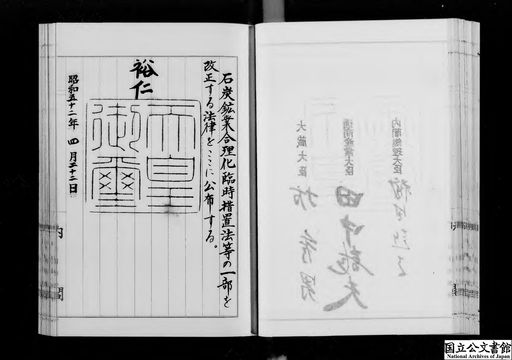 石炭鉱業合理化臨時措置法等の一部を
改正する法律をここに公布する。
裕仁
天皇
御璽
昭和五十二年 四月二十二日
内閣
内閣総理大臣
通商産業大臣
田中龍夫
大蔵大臣
坊秀男
内閣
国立公文書館
National Archives of Japan